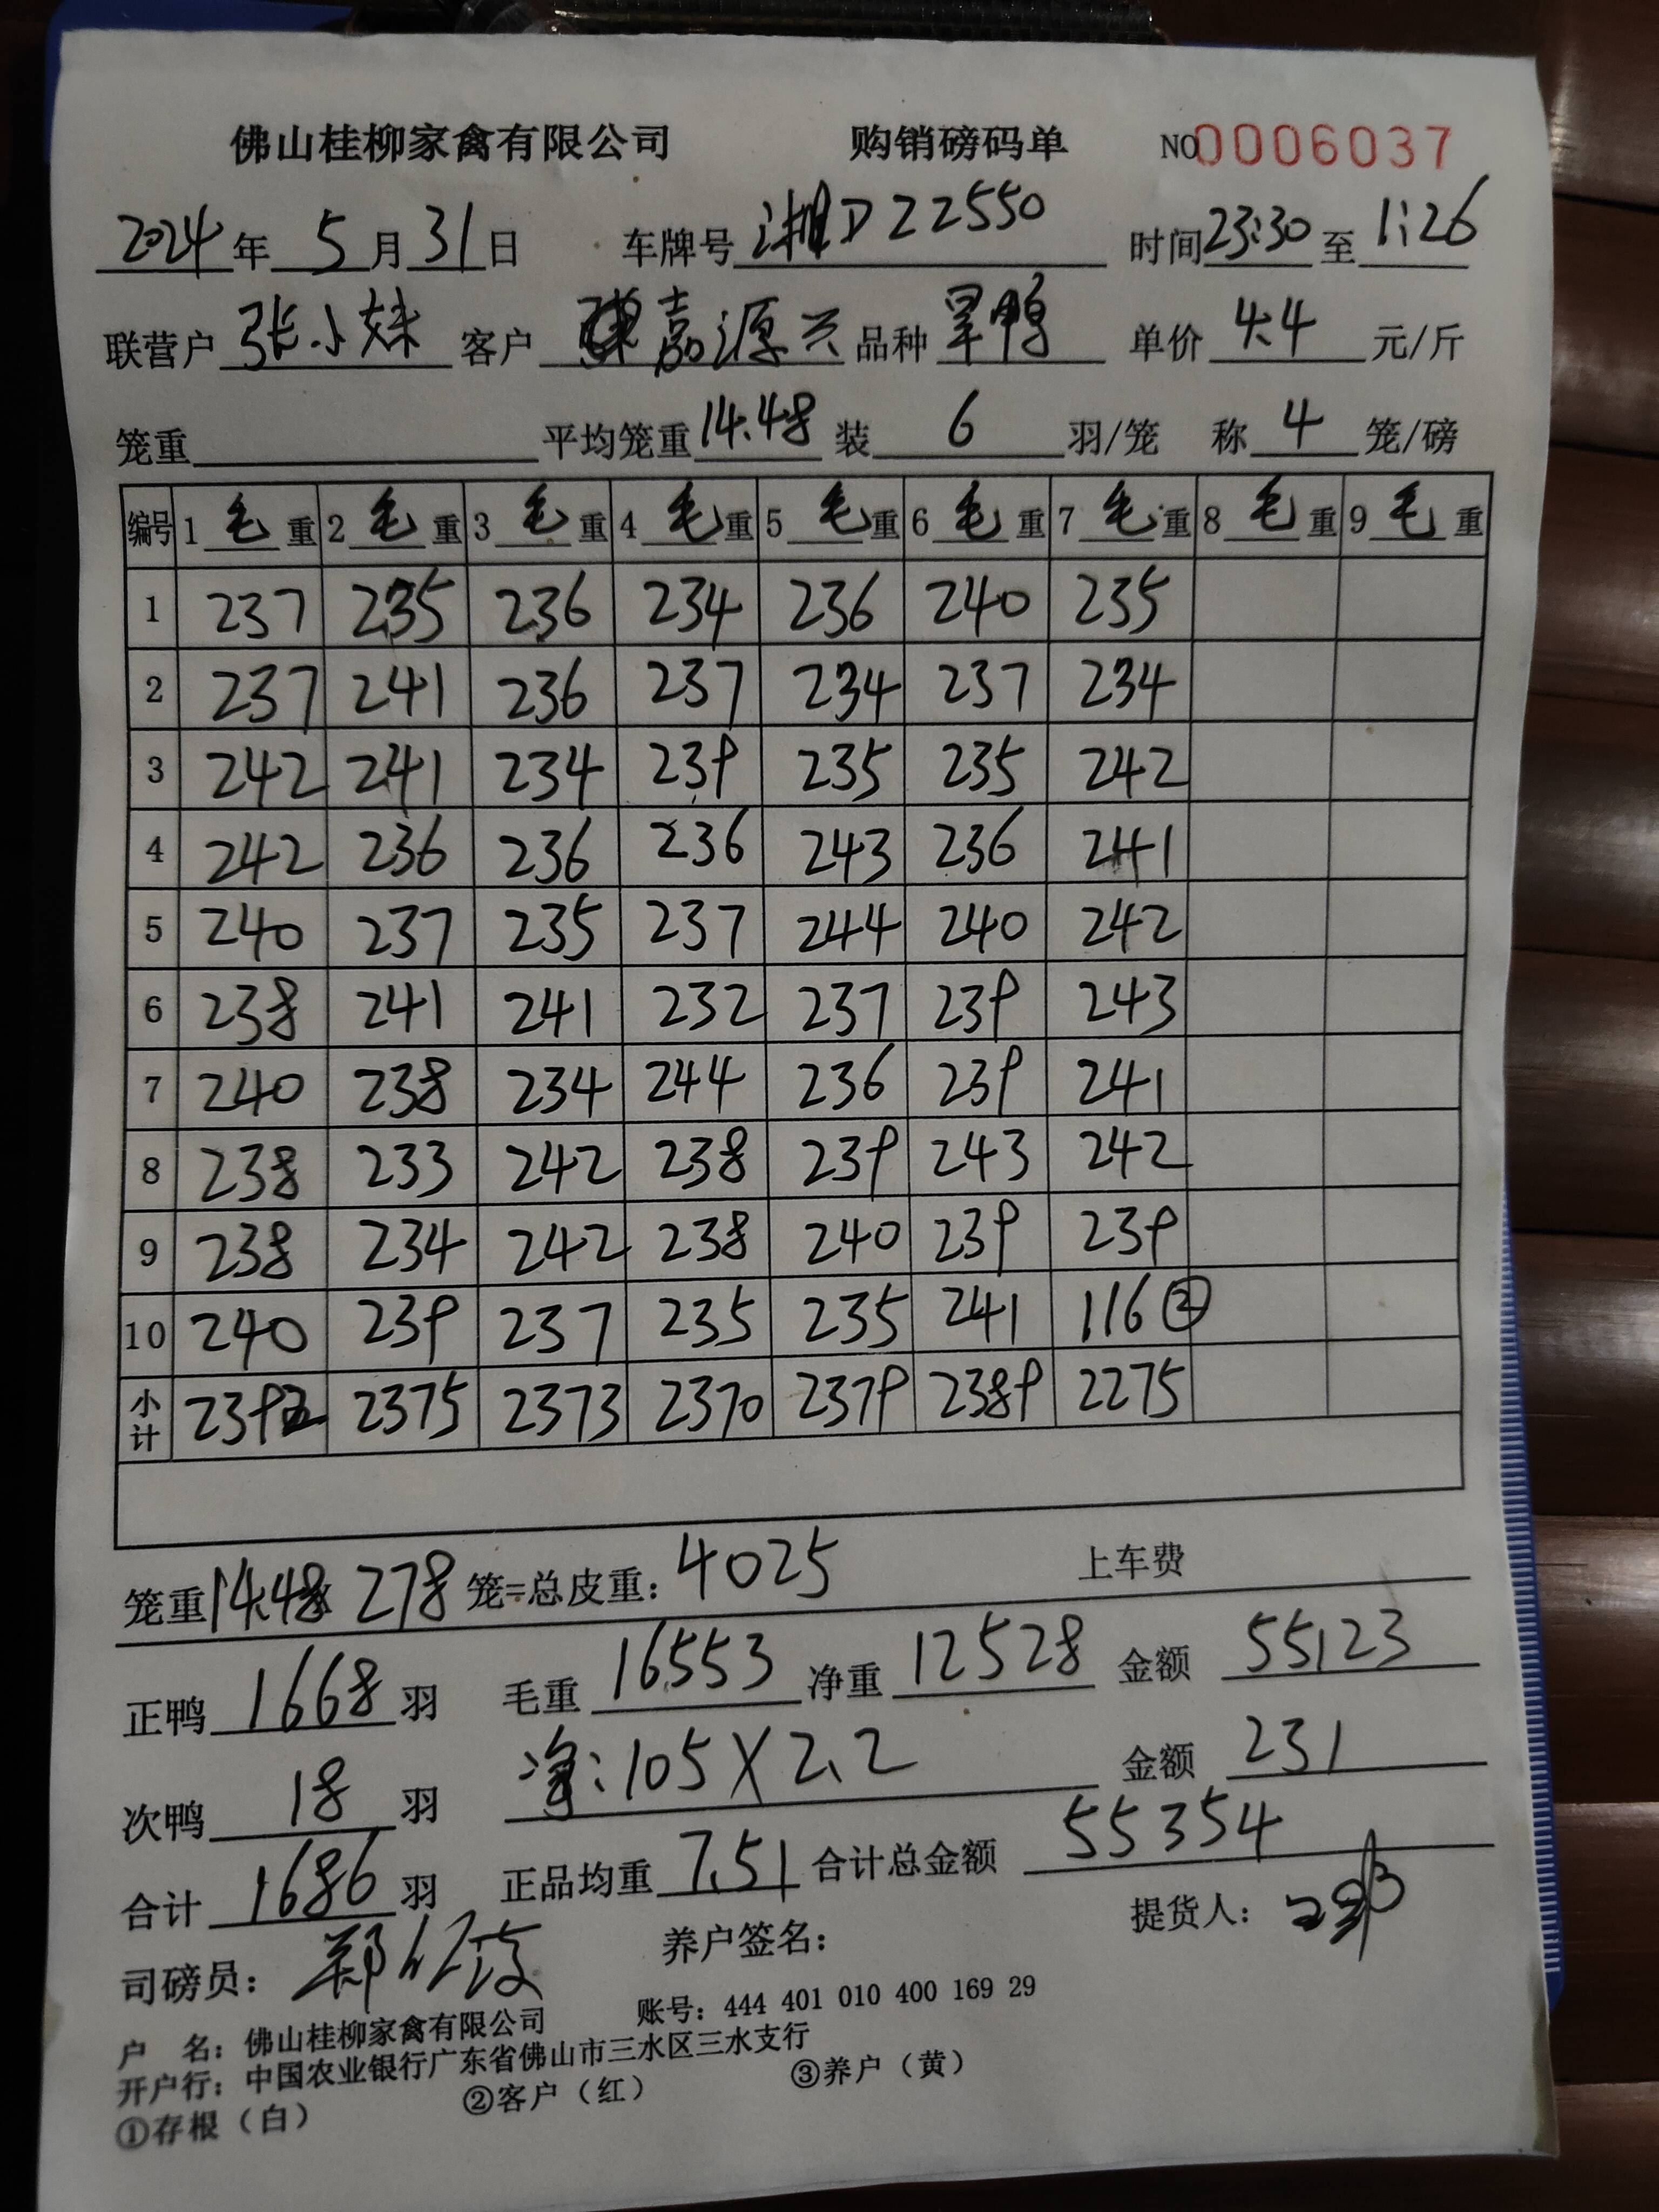 佛山桂柳家禽有限公司 购销磅码单 NO0006037
2024年5月31日 车牌号 湘D22550 时间23:30至1:26
联营户 张小妹 客户 嘉源兴 品种 旱鸭 单价 4.4 元/斤
笼重 平均笼重14.48 装 6 羽/笼 称 4 笼/磅
编号 1毛重 2毛重 3毛重 4毛重 5毛重 6毛重 7毛重 8毛重 9毛重
1 237 235 236 234 236 240 235
2 237 241 236 237 234 237 234
3 242 241 234 239 235 235 242
4 242 236 236 236 243 236 241
5 240 237 235 237 244 240 242
6 238 241 241 232 237 239 243
7 240 238 234 244 236 239 241
8 238 233 242 238 239 243 242
9 238 234 242 238 240 239 239
10 240 239 237 235 235 241 116②
小计 2392 2375 2373 2370 2379 2389 2275
笼重14.48x 278 笼=总皮重：4025 上车费
正鸭 1668 羽 毛重 16553 净重 12528 金额 55123
次鸭 18 羽 净：105X2.2 金额 231
合计 1686 羽 正品均重 7.51 合计总金额 55354
司磅员： 养户签名： 提货人：
户 名：佛山桂柳家禽有限公司 账号：444 401 010 400 169 29
开户行：中国农业银行广东省佛山市三水区三水支行
①存根（白） ②客户（红） ③养户（黄）